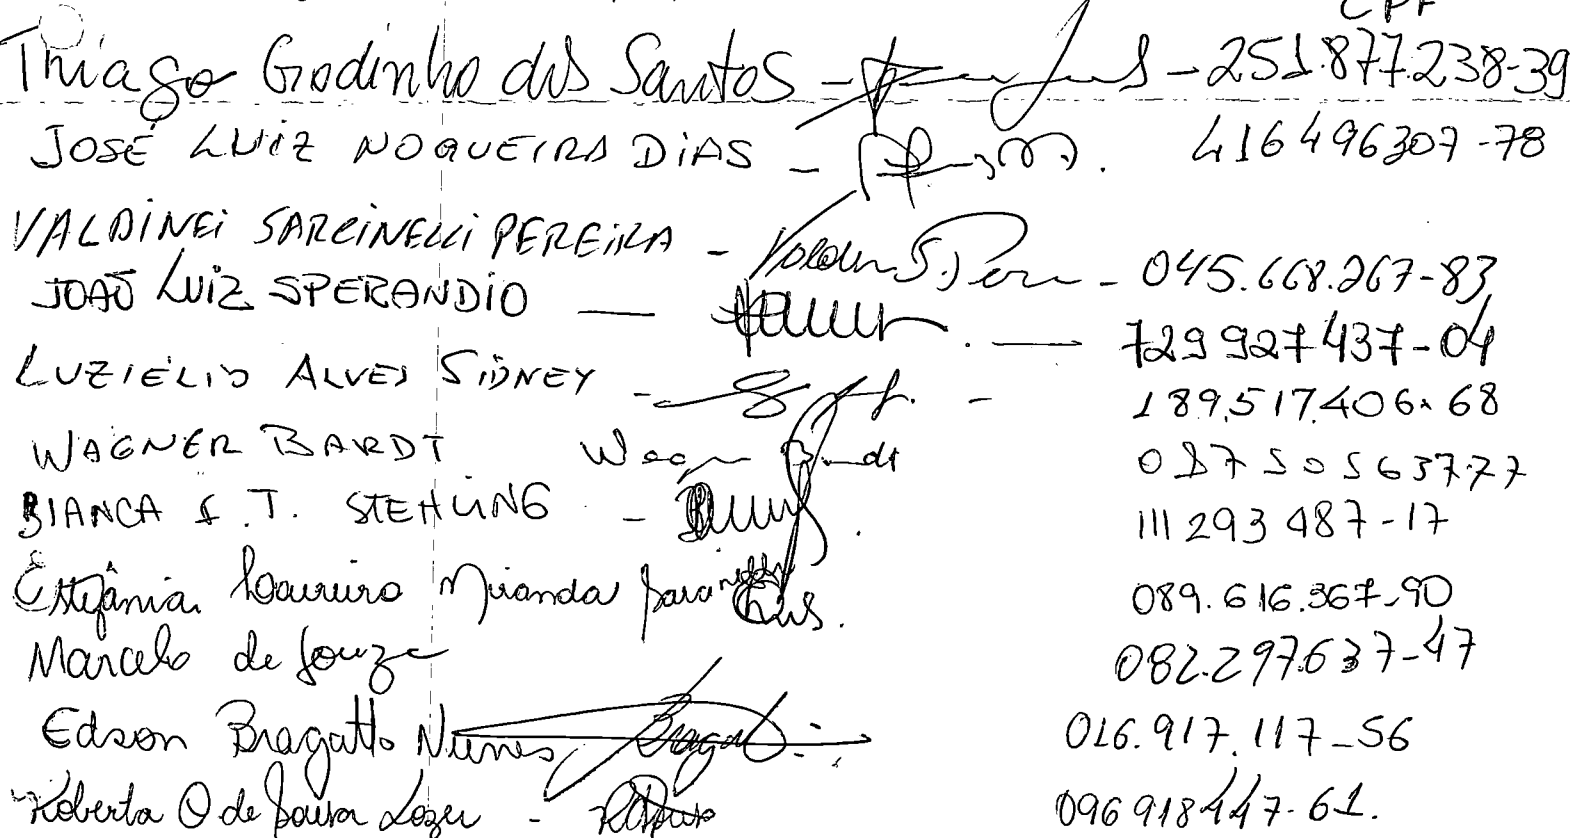 CPF
Thiago Godinho dos Santos - - 251.877.238-39
JOSÉ LUIZ NOGUEIRA DIAS - . 416496307-78
VALDINEI SARCINELLI PEREIRA - - 045.668.267-83
JOÃO LUIZ SPERANDIO — . — 729 927 437-04
LUZIÉLIO ALVES SIDNEY - - 189.517.406.68
WAGNER BARDT 087505637.77
BIANCA T. STEHLING - 111 293 487-17
Estefânia Loureiro Miranda 089.616.367-90
Marcelo de Souza 082.297.637-47
Edson Bragatto Nunes 016.917.117-56
Roberta O de Souza Lozer - 096918447-61.